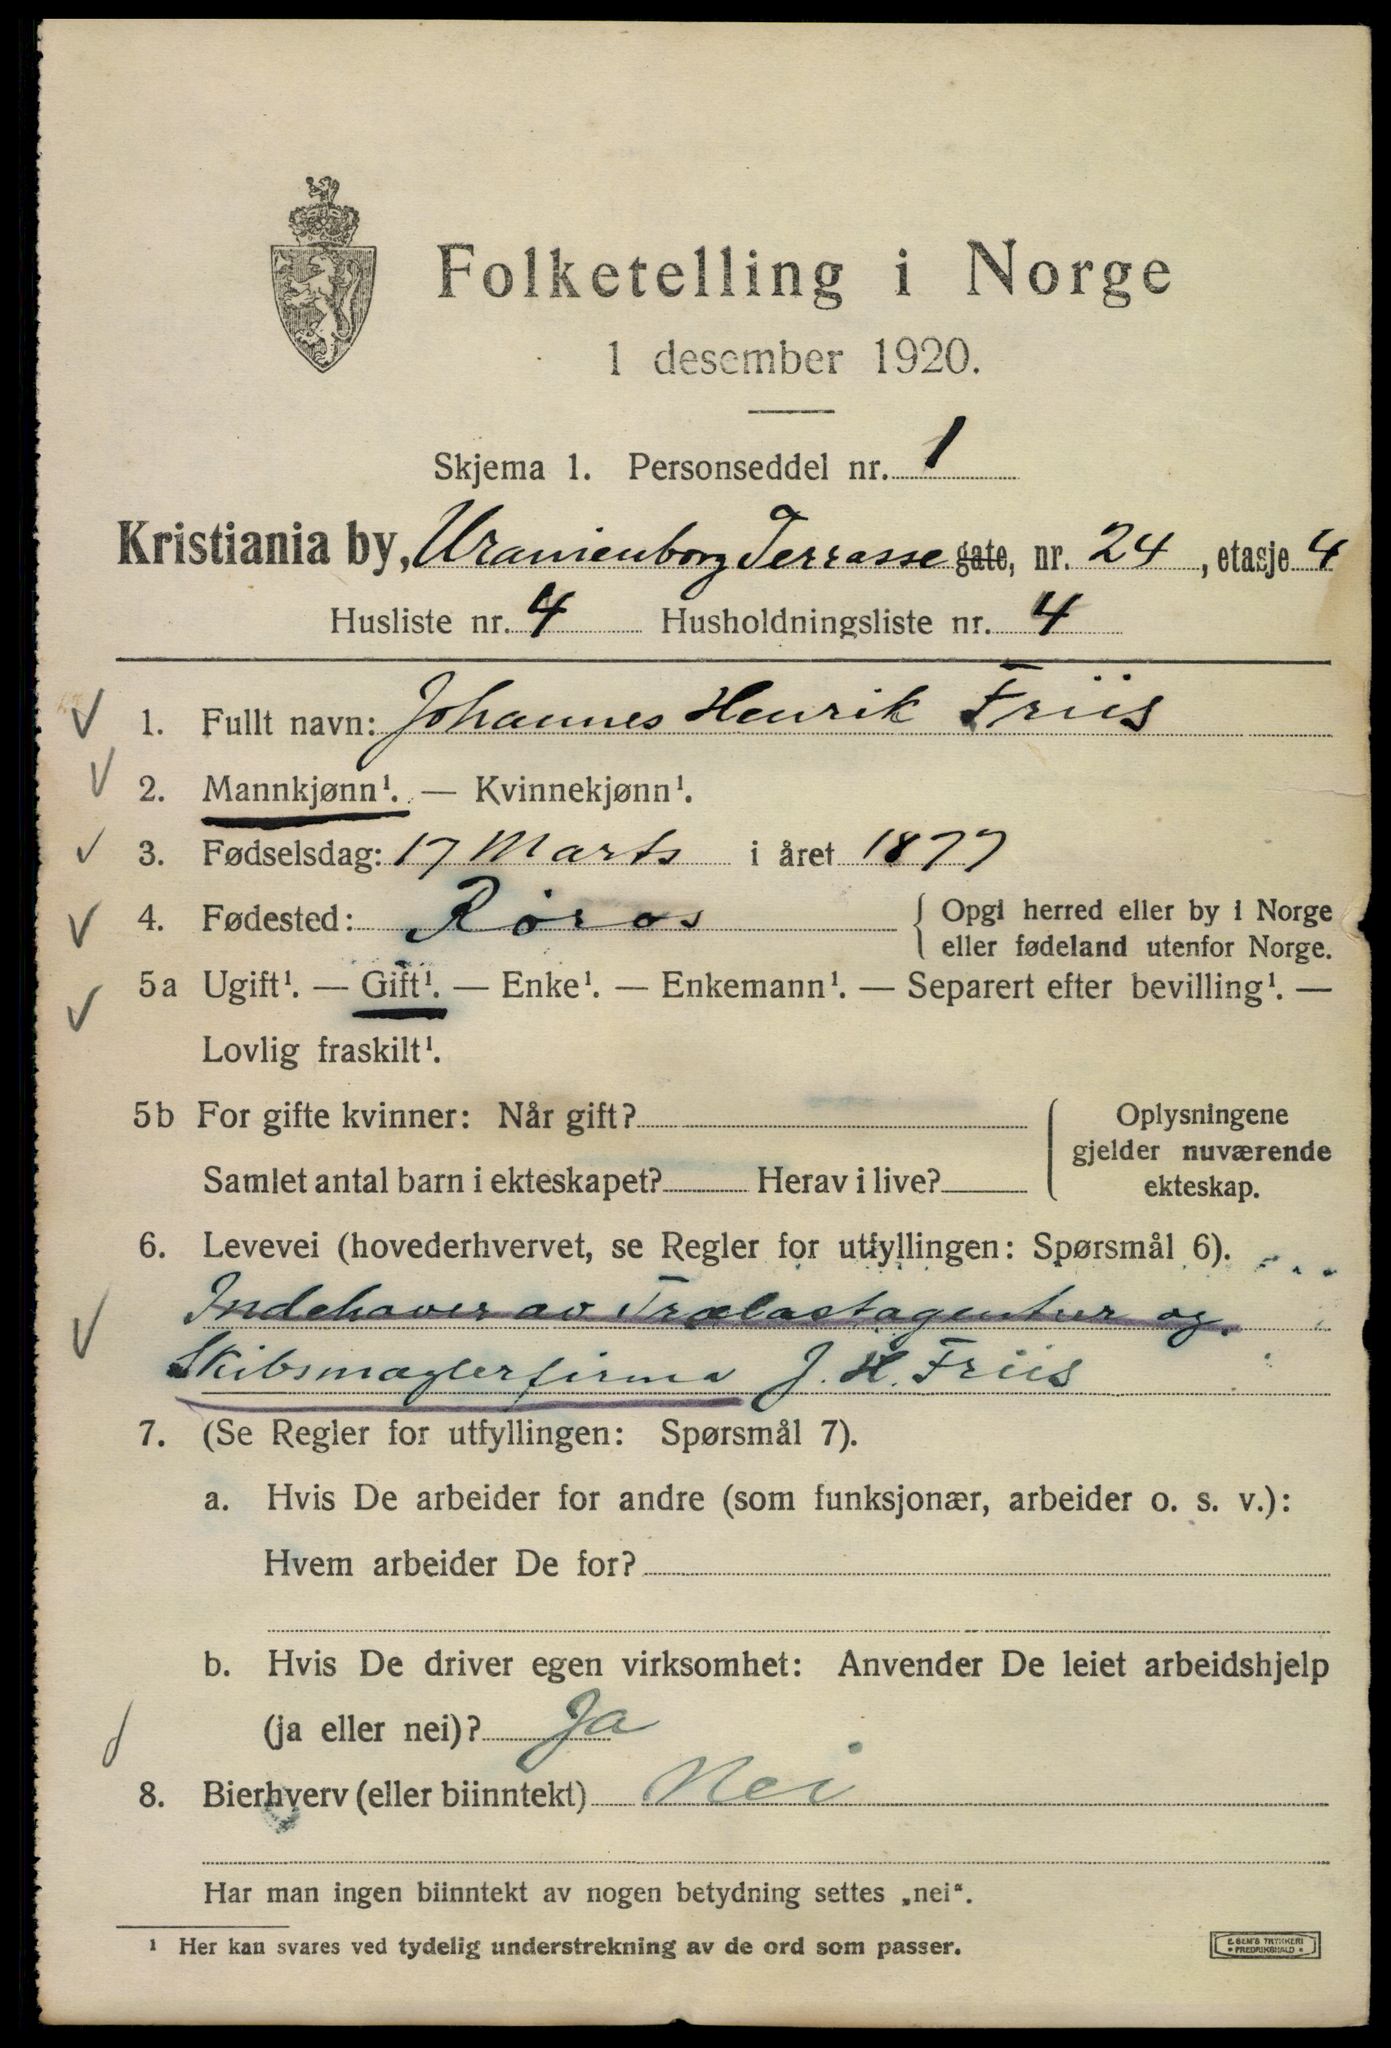 Folketelling i Norge
1 desember 1920.
Skjema 1. Personseddel nr. 1
Kristiania by, Uranienborg Terrasse gate, nr. 24, etasje 4
Husliste nr. 4 Husholdningsliste nr. 4
1. Fullt navn: Johannes Henrik Friis
2. Mannkjønn¹. — Kvinnekjønn¹.
3. Fødselsdag: 17 Marts i året 1877
4. Fødested: Røros { Opgi herred eller by i Norge
eller fødeland utenfor Norge.
5a Ugift¹. — Gift¹. — Enke¹. — Enkemann¹. — Separert efter bevilling¹. —
Lovlig fraskilt¹.
5b For gifte kvinner: Når gift?
Samlet antal barn i ekteskapet? Herav i live?
Oplysningene
gjelder nuværende
ekteskap.
6. Levevei (hovederhvervet, se Regler for utfyllingen: Spørsmål 6).
Indehaver av Trælastagentur og
Skibsmæglerfirma J. H. Friis
7. (Se Regler for utfyllingen: Spørsmål 7).
a. Hvis De arbeider for andre (som funksjonær, arbeider o. s. v.):
Hvem arbeider De for?
b. Hvis De driver egen virksomhet: Anvender De leiet arbeidshjelp
(ja eller nei)? Ja
8. Bierhverv (eller biinntekt) Nei
Har man ingen biinntekt av nogen betydning settes „nei“.
¹ Her kan svares ved tydelig understrekning av de ord som passer.
E. SEM'S TRYKKERI
• FREDRIKSHALD •